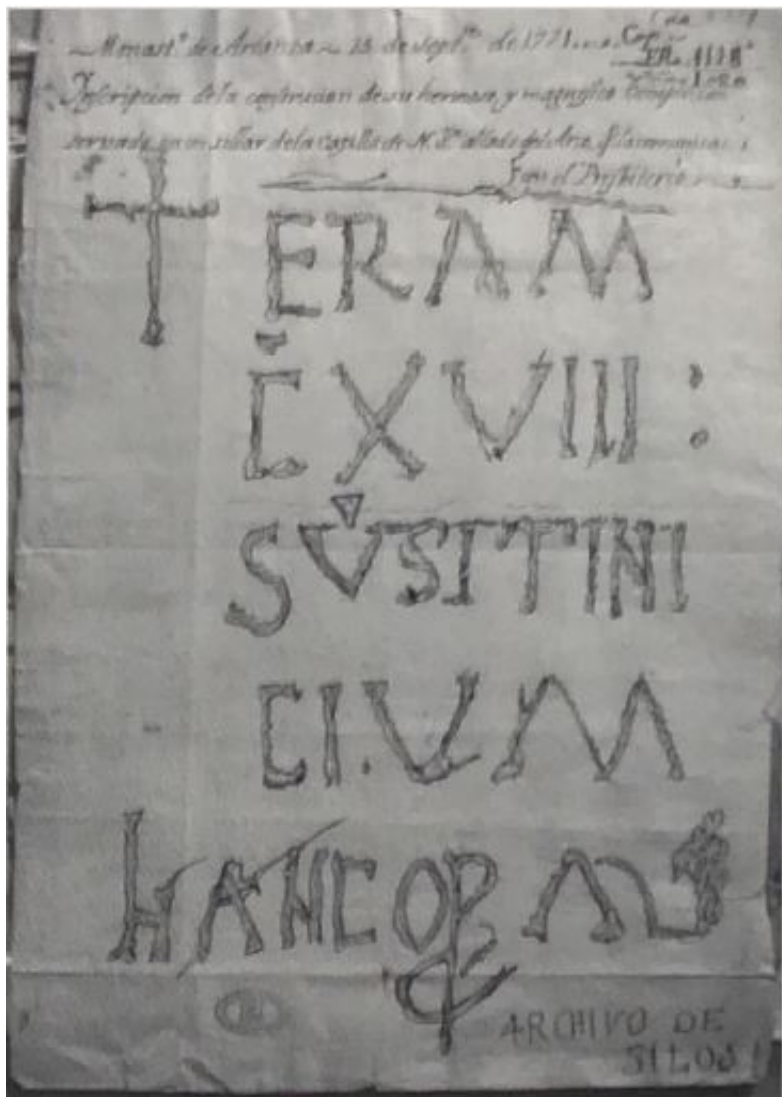 Monast.º de Arlanza 13 de Sept.e de 1771.
Inscripcion de la construcion de su hermoso, y magnifico
en un sillar de la capilla de N. S.ª al lado del Arco,
el Presbiterio
Era 1118
1080
† ERAM
C̆XVIII :
SV̆SIT INI
CI.UM
HANC OP AUS
ARCHIVO DE
SILOS